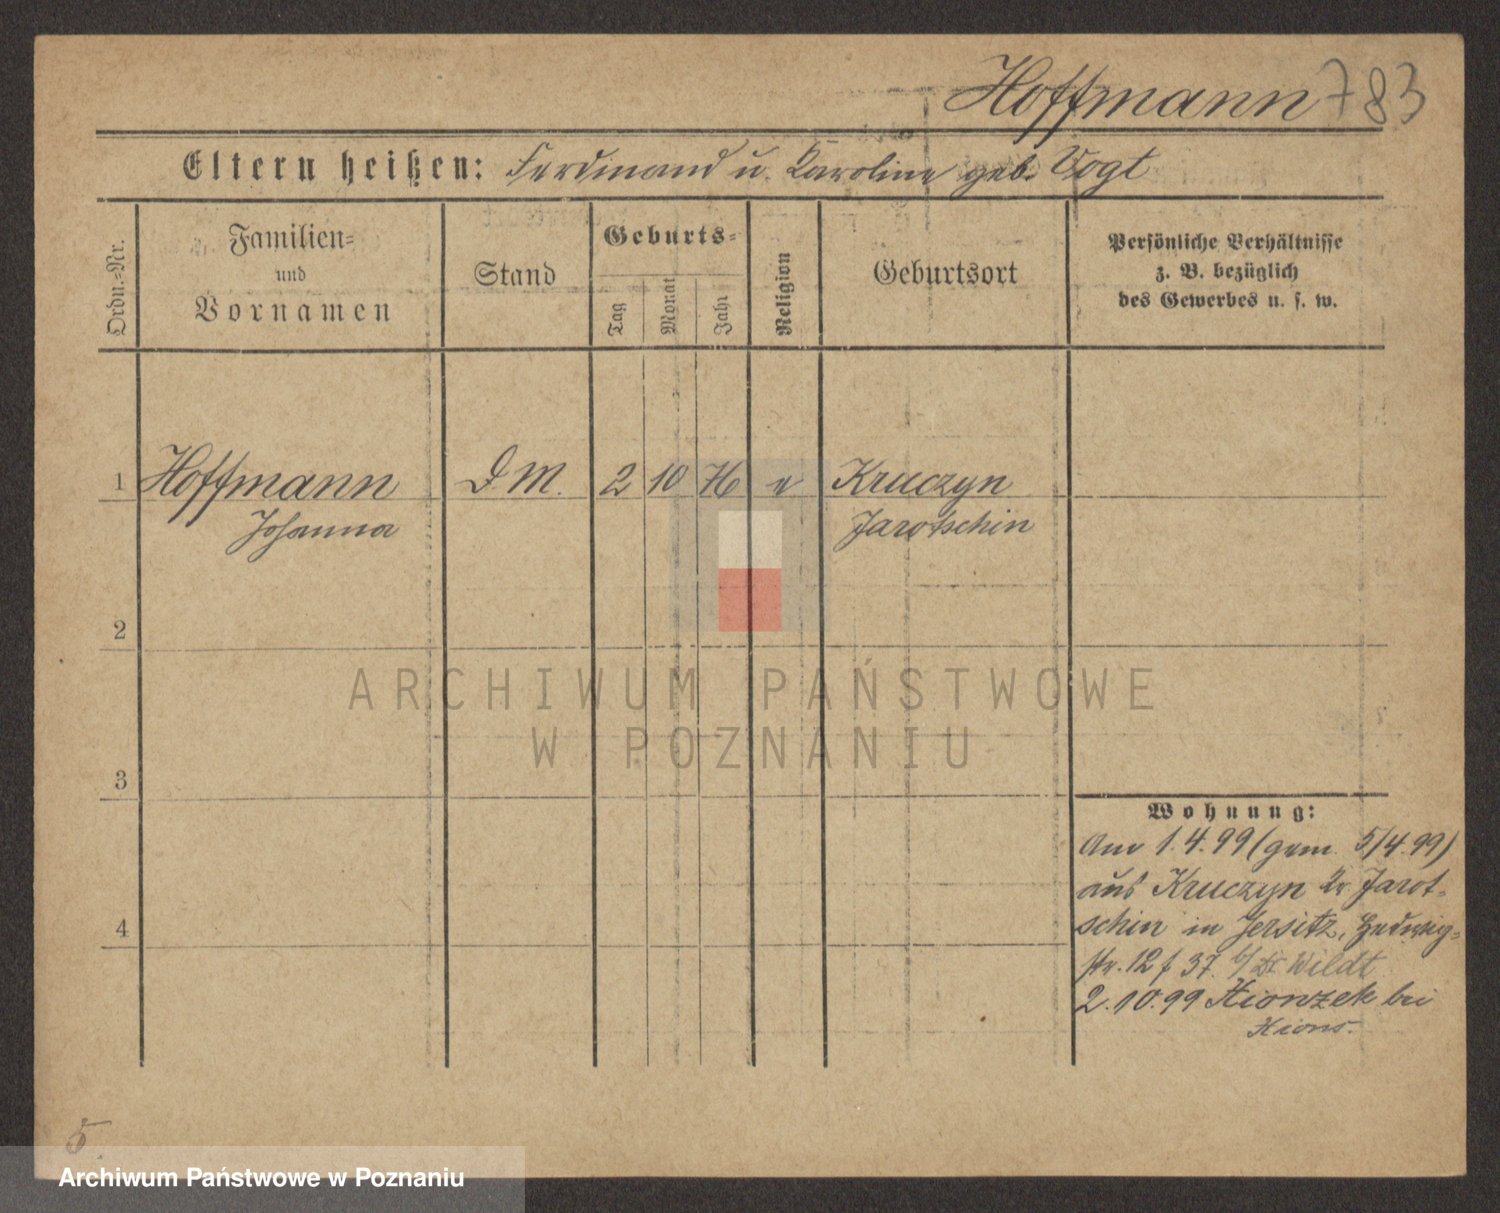 Hoffmann 783
Eltern heißen: Ferdinand u. Karoline geb. Vogt
Ordn.-Nr.
Familien-
und
Vornamen
Stand
Geburts-
Tag
Monat
Jahr
Religion
Geburtsort
Persönliche Verhältnisse
z. B. bezüglich
des Gewerbes u. s. w.
1 Hoffmann D. M. 2 10 76 e Kruczyn
Johanna Jarotschin
2
ARCHIWUM PAŃSTWOWE
W POZNANIU
3
Wohnung:
Am 1.4.99 (gem. 5/4.99)
aus Kruczyn Kr. Jarot-
schin in Jersitz, Hedwig-
4
str. 12 f 37. b/ Dr Wildt
2.10.99 Xionzek bei
Xions.
5.
Archiwum Państwowe w Poznaniu